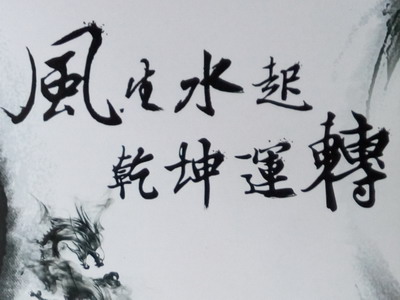 風生水起
乾坤運轉